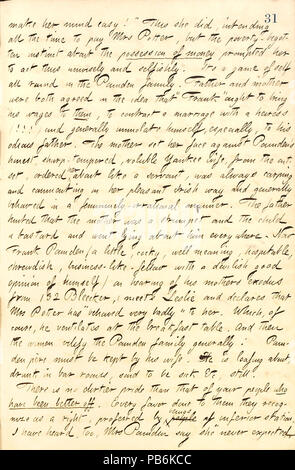 31
make her mind easy!" This she did, intending
all the time to pay Mrs Potter, but the poverty-begot-
ten instinct about the possession of money prompted her
to act thus unwisely and selfishly. It's a game of self
all round in the Pounden family. Father and mother
were both agreed in the idea that Frank ought to bring
his wages to them, to contract a marriage with a heiress
!!!, and generally immolate himself, especially to his
odious father. The mother set her face against Pounden's
honest, sharp-tempered, voluble Yankee wife, from the out-
set, ordered "about like a servant", was always carping
and commenting in her pleasant Irish way and generally
behaved in a femininely-natural manner. The father
hinted that the mother was a strumpet and the child
a bastard and went lying about him everywhere. Now
Frank Pounden (a little, cocky, well meaning, hospitable,
shrewdish, business-like fellow with a devilish good
opinion of himself) on hearing of his mother's exodus
from 132 Bleecker, meets Leslie and declares that
Mrs Potter has behaved very badly to her. Which, of
course, he ventilates at the breakfast table. And then
the women vilify the Pounden family generally! Poun-
den père must be kept by his wife. He is loafing about,
drunk in bar rooms, said to be sick &c, still.
There is no dirtier pride than that of your people who
have been better off. Every favor done to them they recog-
nize as a right", proffered by beings of inferior station.
I have heard, too, Mrs Pounden say she "never expected
alamy
Image ID: PB6KCC
www.alamy.com